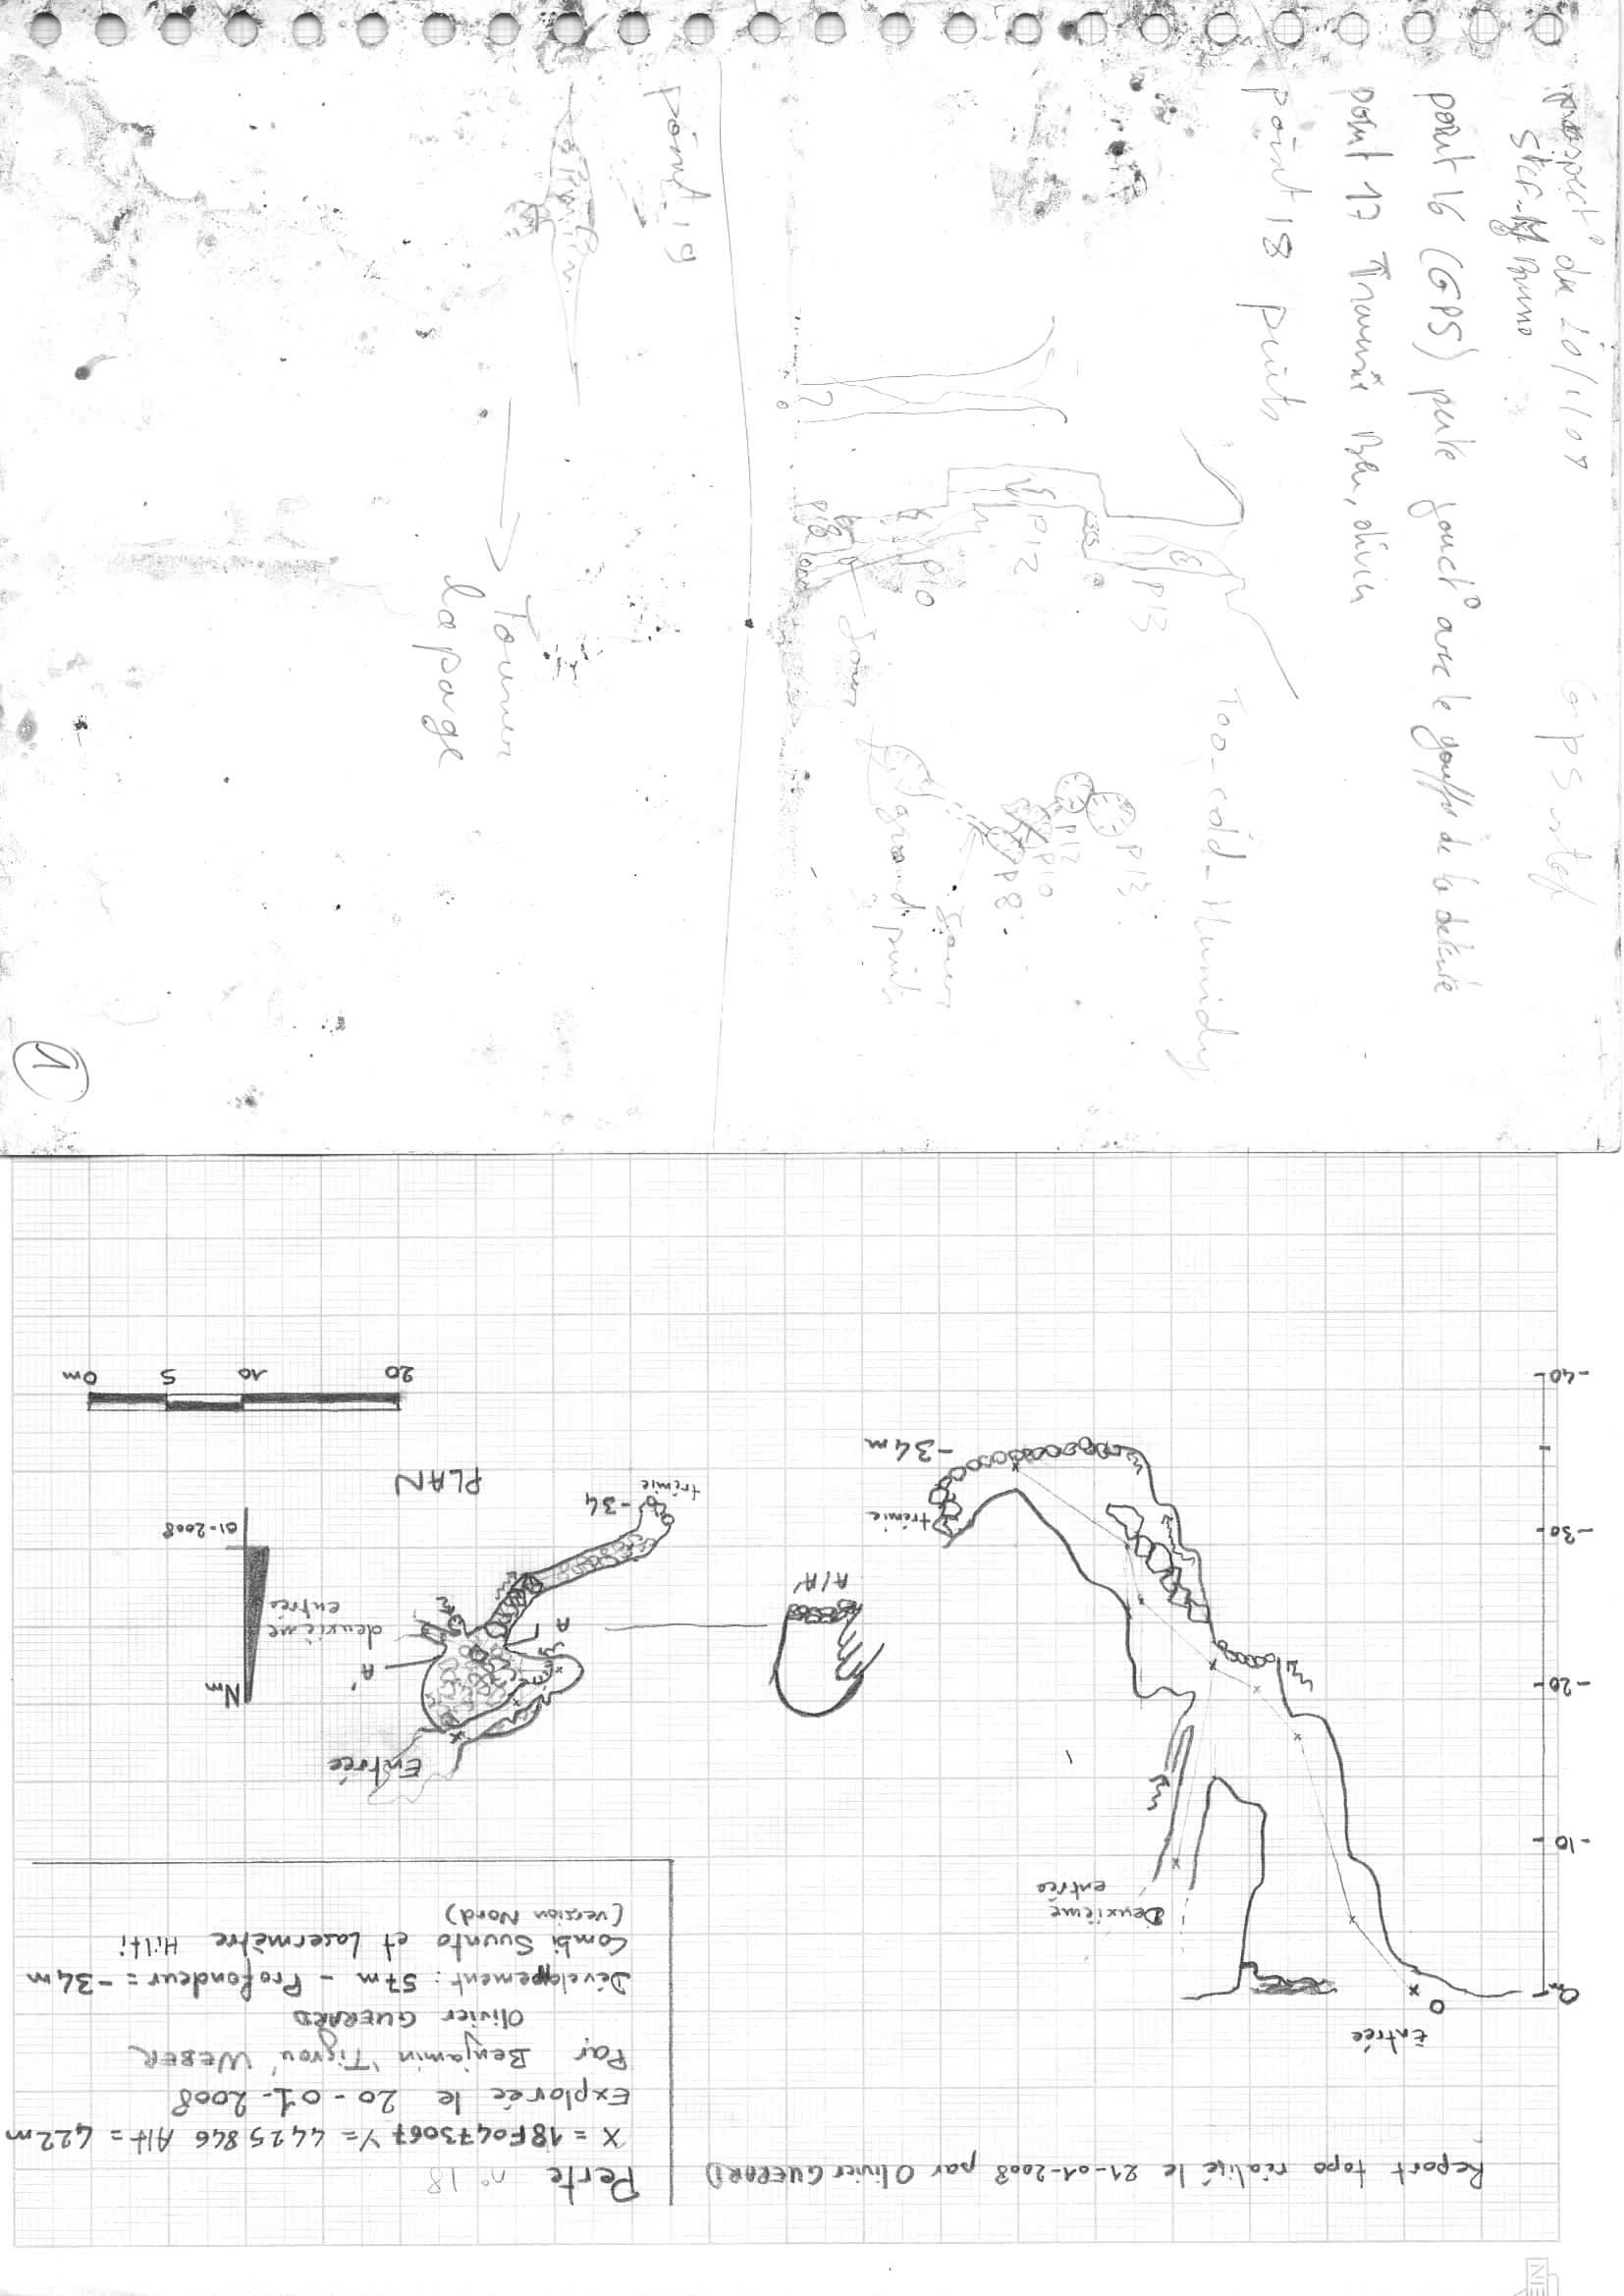 prospect° du 20/1/08
Stef - Bruno
GPS stef
point 16 (GPS) perte jonct° avec le gouffre de la detente
point 17 Traversée
point 18 puits
Too-cold-Humidy
P13
P12
P10
P8
P13
P12
P10
P8
grand puits
?
point 19
Tourner
la page
1
Report topo réalisé le 21-01-2008 par Olivier GUERARD
Perte n°18
X = 18F0473067 Y= 4425846 Alt= 422m
Explorée le 20-01-2008
Par Benjamin 'Tigrou' WEBER
Olivier GUERARD
Développement : 57m - Profondeur = -34m
Combi Suunto et Lasermètre Hilti
(version Nord)
Entrée
0
0m
-10
-20
-30
-40
Deuxième
entrée
trémie
-34m
A/A'
Entrée
A'
A
deuxième
entrée
-34
trémie
PLAN
Nm
01-2008
0m 5 10 20